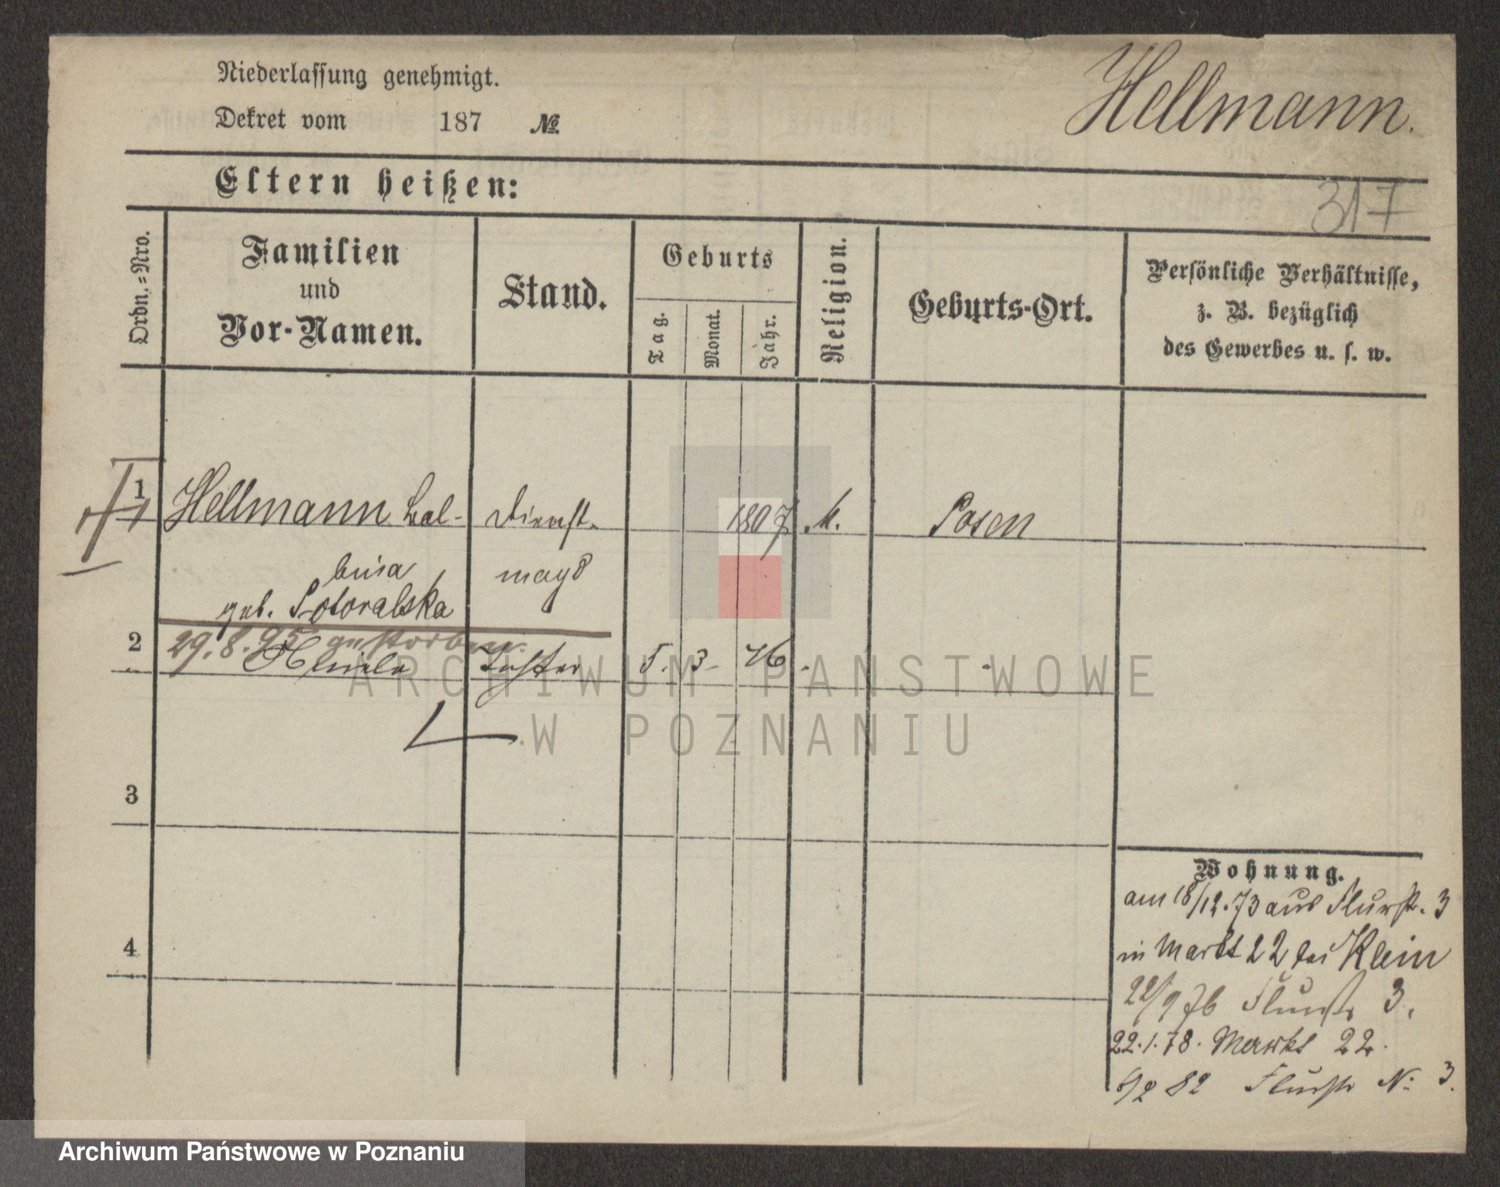 Niederlassung genehmigt.
Dekret vom 187 №
Hellmann.
317
Eltern heißen:
Ordn.-Nro.
Familien
und
Vor-Namen.
Stand.
Geburts
Tag.
Monat.
Jahr.
Religion.
Geburts-Ort.
Persönliche Verhältnisse,
z. B. bezüglich
des Gewerbes u. s. w.
1 Hellmann Bal- Dienst- 1807 k. Posen
bina magd
geb.
29.8.95 gestorben.
2 Tochter 5. 3. 46
3
4
Wohnung.
am 18/12.73 aus Flurst. 3
in Markt 22 bei Klein
22/9 76 Flurst. 3.
22.1.78. Markt 22.
82 Flurstr N: 3.
ARCHIWUM PAŃSTWOWE
W POZNANIU
Archiwum Państwowe w Poznaniu